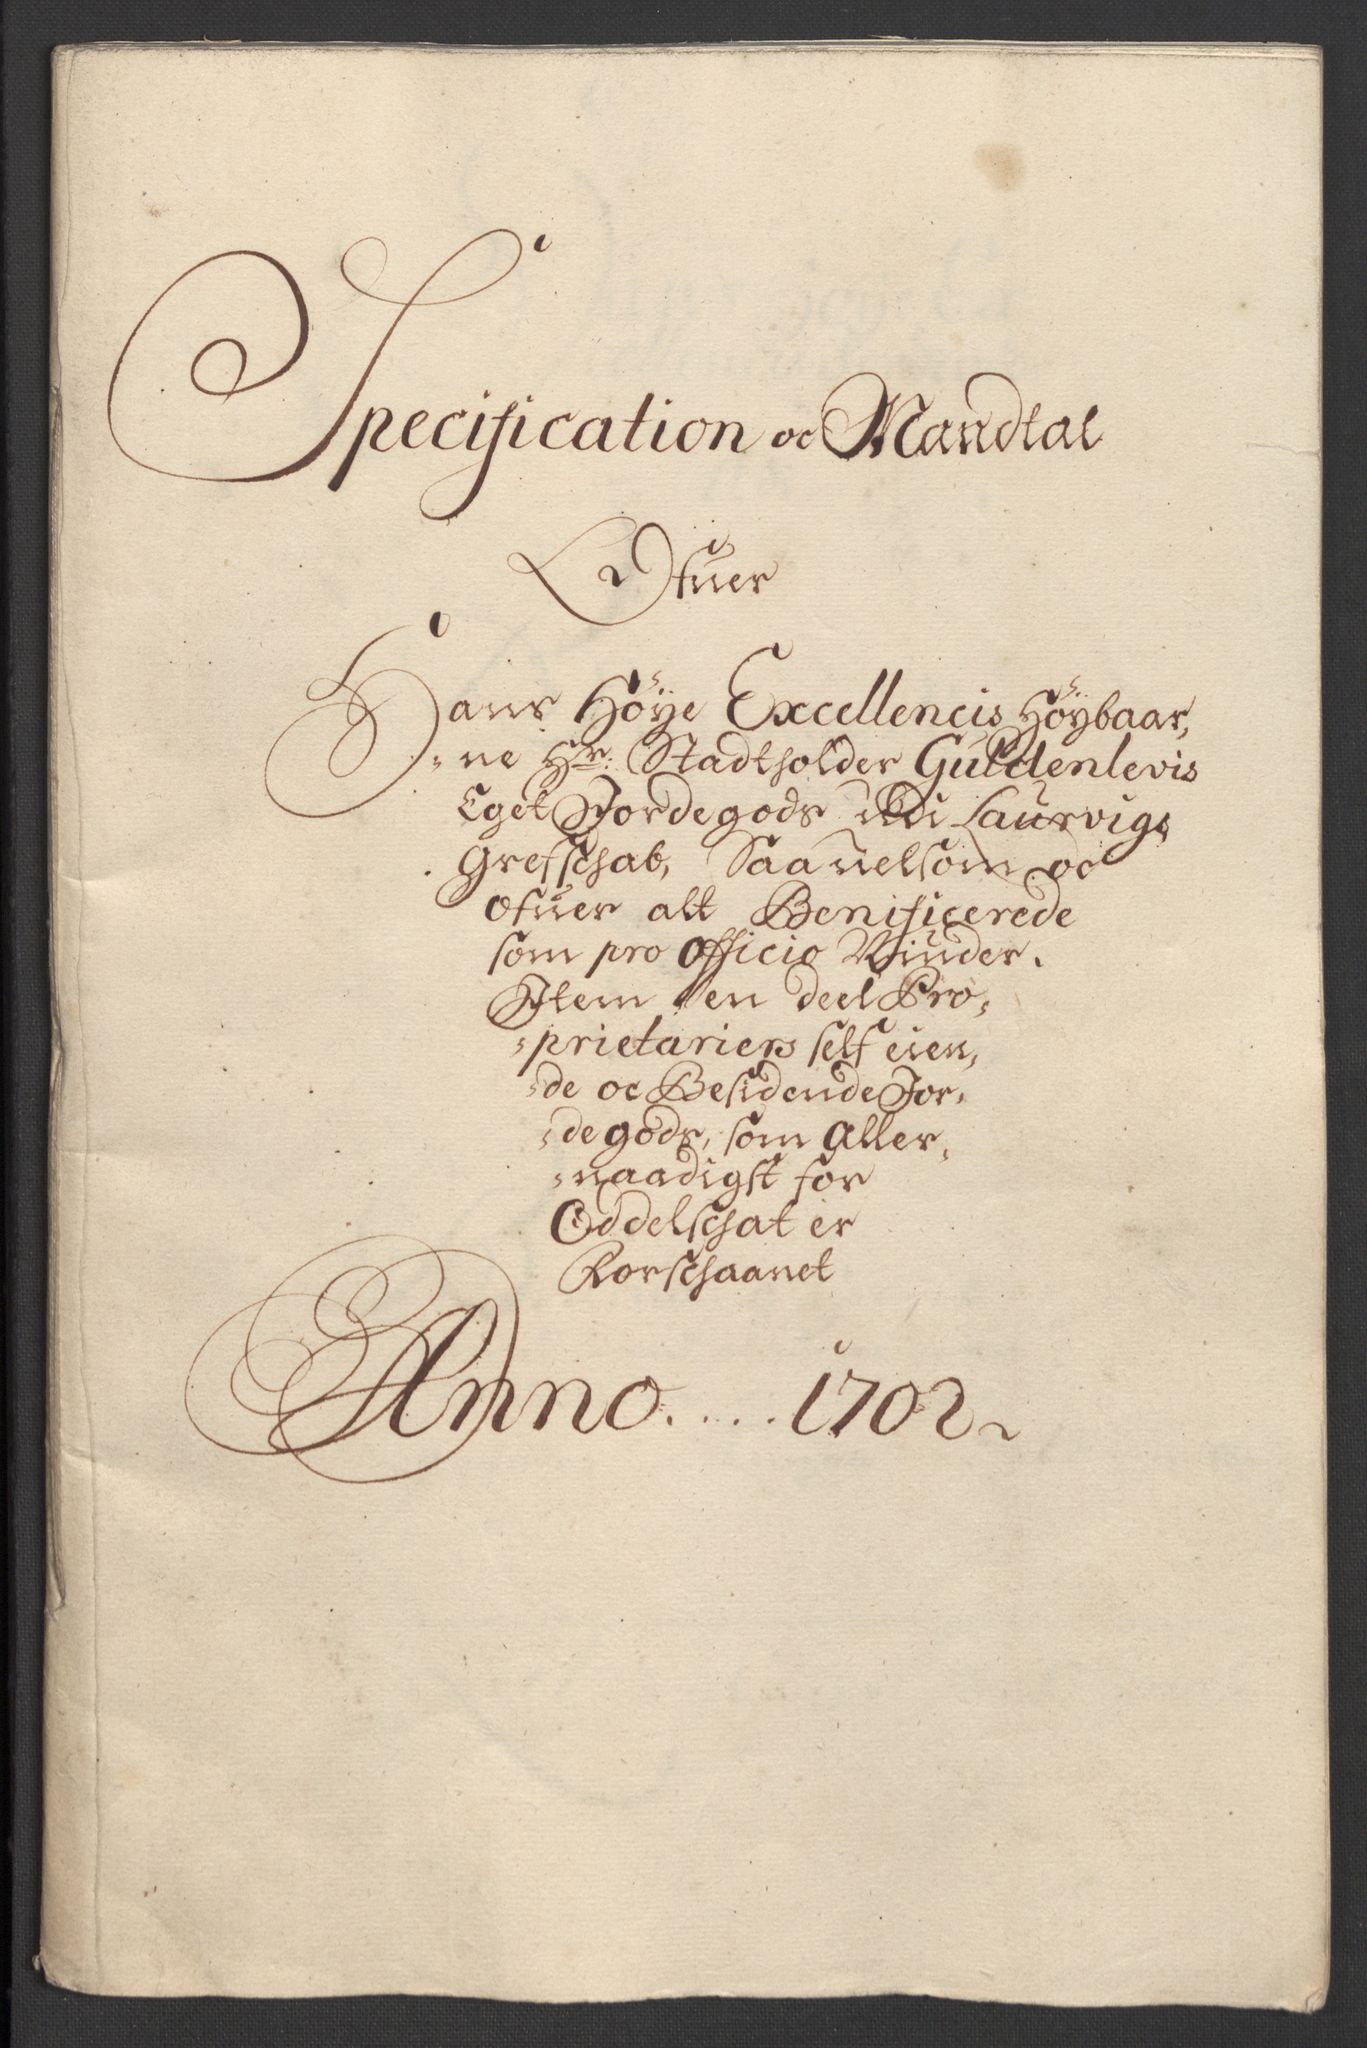 Specification oc Mandtal
Ofuer
Hans Höÿe Excellencis Höÿbaar,
-ne Hr: Stadtholder Guldenlevis
Eget Jordegods udi Laurvigs
Grefschab, Saauelsom oc
ofuer alt Benificerede
som pro Officio Niuder.
Item en deel Pro,
-prietariers self eien,
-de oc Besidende Jor,
-degods, som Aller,
-naadigst for
Oddelschat er
Forschaanet
Anno.... 1702